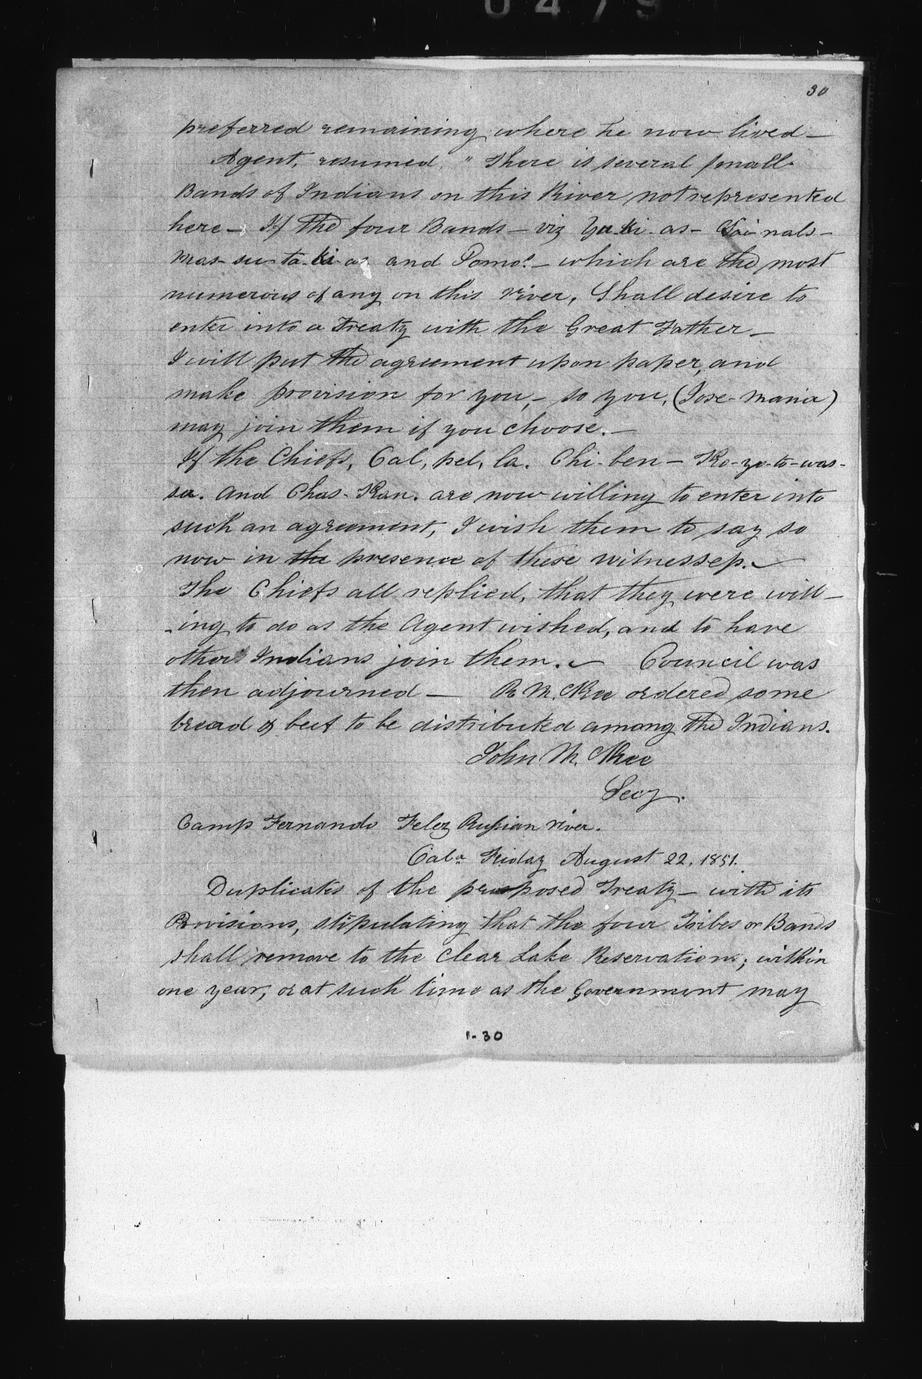 0479
30
preferred remaining where he now lived—
Agent, resumed, "There is several small
Bands of Indians on this River not represented
here— If the four Bands— viz Yu-ki-as- Sai-nals-
Mas-su-ta-ki-as and Pomo!— which are the most
numerous of any on this river, Shall desire to
enter into a Treaty with the Great Father—
I will put the agreement upon paper, and
make provision for you,— so you, (Jose-Maria)
may join them if you choose.—
If the Chiefs, Cal, pel, la. Chi-ben— Ko-ya-to-was-
sa. and Chas-Kan. are now willing to enter into
such an agreement, I wish them to say so
now in the presence of these witnesses.—
The Chiefs all replied, that they were will-
-ing to do as the Agent wished, and to have
other Indians join them.— Council was
then adjourned— R. McKee ordered some
bread & beef to be distributed among the Indians.
John McKee
Secy.
Camp Fernando Felez Russian river.
Cala Friday August 22. 1851.
Duplicates of the proposed Treaty— with its
Provisions, stipulating that the four Tribes or Bands
shall remove to the Clear Lake Reservation; within
one year, or at such time as the Government may
1-30